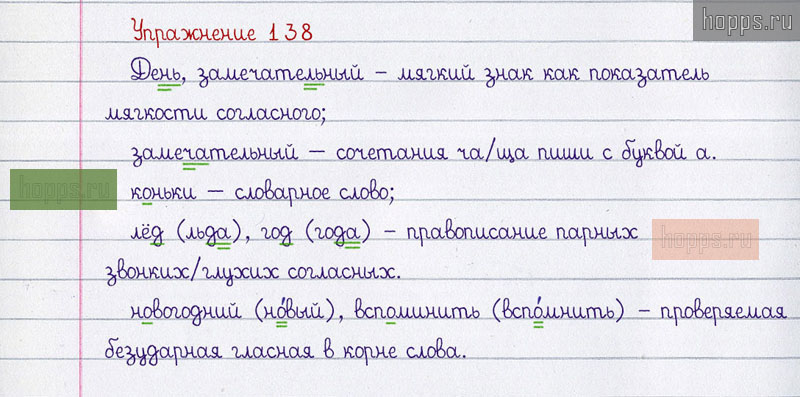 hopps.ru
Упражнение 138
День, замечательный – мягкий знак как показатель
мягкости согласного;
замечательный – сочетания ча/ща пиши с буквой а.
hopps.ru
коньки – словарное слово;
лёд (льда), год (года) – правописание парных
hopps.ru
звонких/глухих согласных.
новогодний (но́вый), вспоминить (вспо́мнить) – проверяемая
безударная гласная в корне слова.